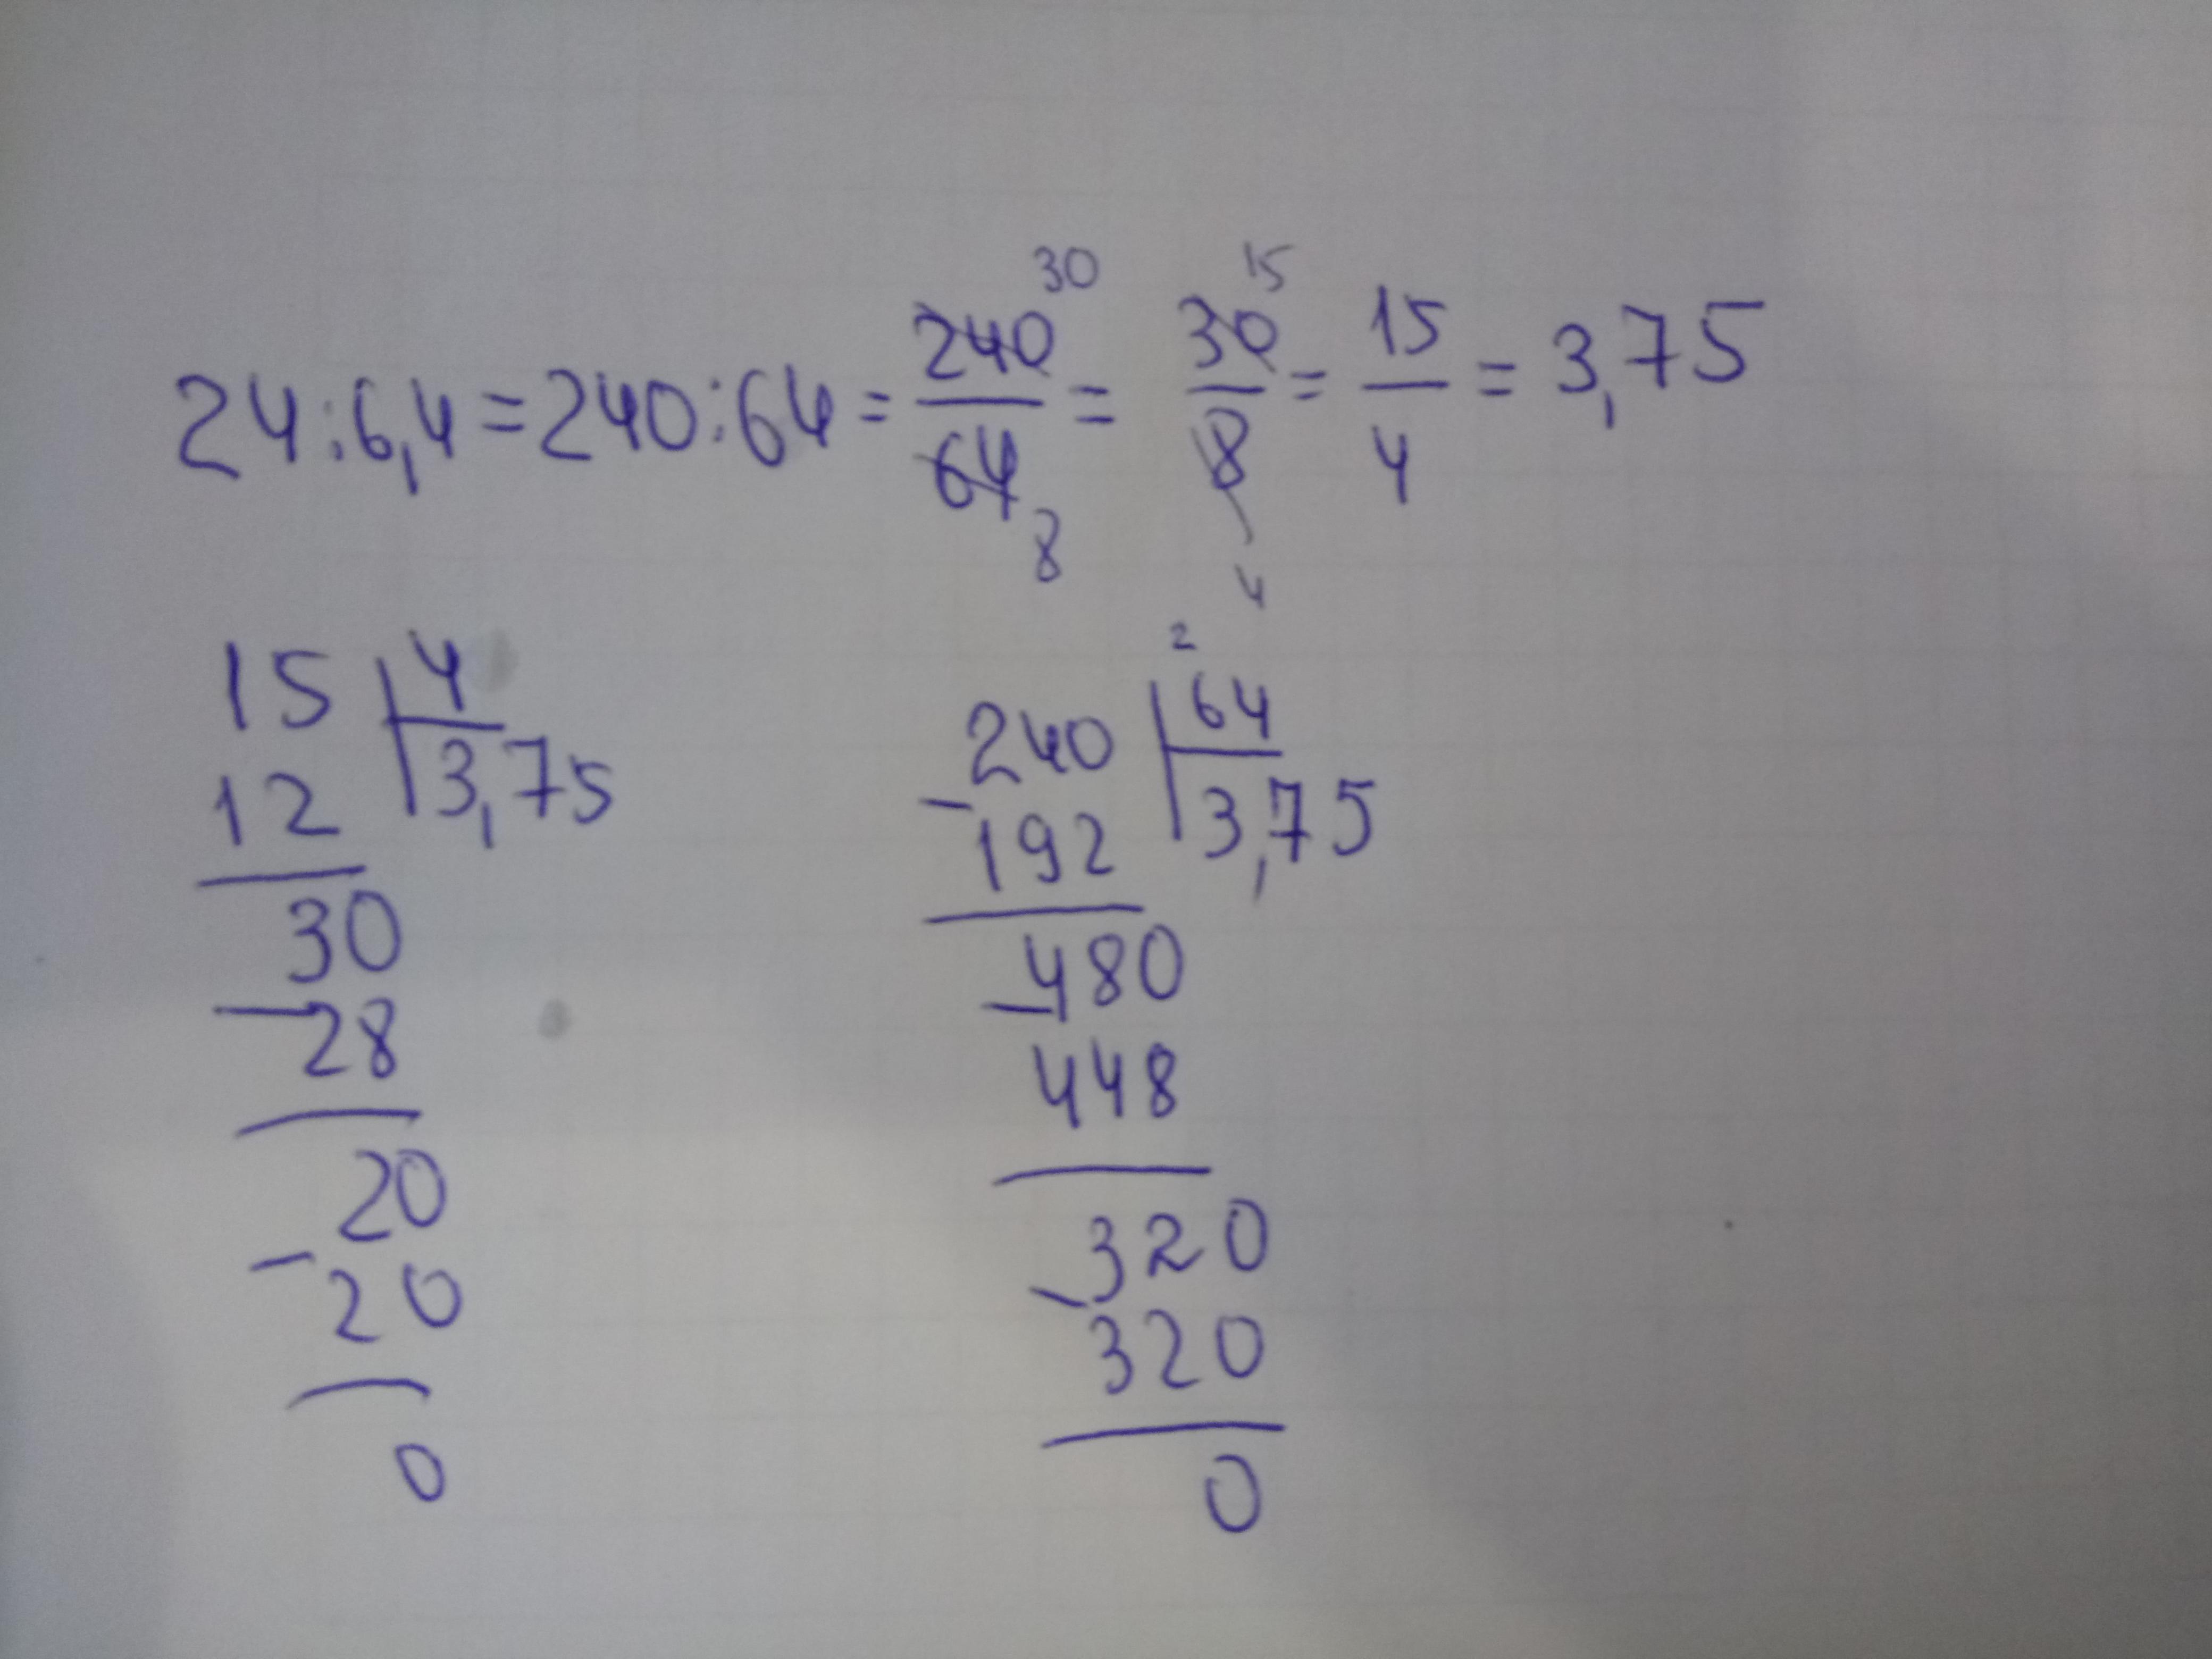 24:6,4=240:64=240/64=30/8=15/4=3,75
30 15
8
4
15 4
12 3,75
30
-28
20
-20
0
2
240 64
-192 3,75
480
-448
320
-320
0